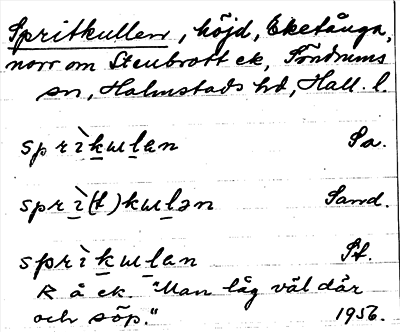 Spritkullen, höjd, Eketånga,
norr om Stenbrott ek, Söndrums
sn, Halmstads hd, Hall. l.
sprìkɯlan Sa.
sprì(t)kɯlən Sand.
sprìkɯlan St.
R å ek "Man låg väl där
och söp." 1956.